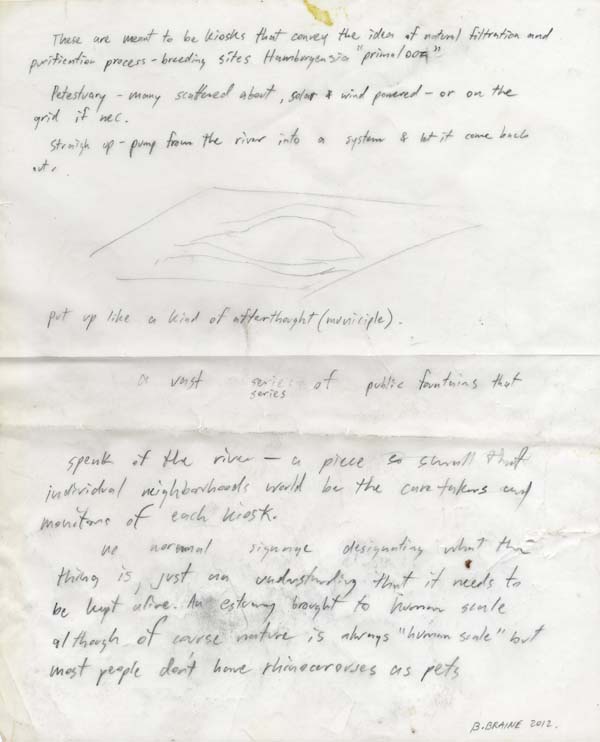 These are meant to be kiosks that convey the idea of natural filtration and
purification process - breeding sites Hamburgensia "primal
Petestuary - many scattered about, solar & wind powered - or on the
grid if nec.
Straigh up - pump from the river into a system & let it come back
out.
put up like a kind of afterthought (municiple).
a vast series of public fountains that
series
speak of the river - a piece so small that
individual neighborhoods would be the caretakers and
monitors of each kiosk.
no normal signage designating what the
thing is, just an understanding that it needs to
be kept alive. An estuary brought to human scale
although of course nature is always "human scale" but
most people don't have rhinocerouses as pets
B. BRAINE 2012.